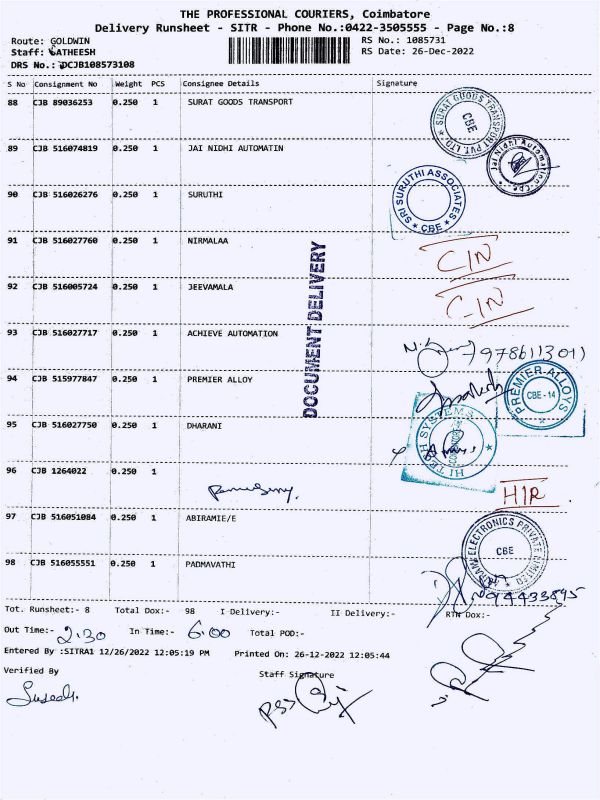 THE PROFESSIONAL COURIERS, Coimbatore
Delivery Runsheet - SITR - Phone No.:0422-3505555 - Page No.:8
Route: GOLDWIN
RS No.: 1085731
Staff: SATHEESH
RS Date: 26-Dec-2022
DRS No.: DCJB108573108
S No Consignment No Weight PCS Consignee Details Signature
88 CJB 89036253 0.250 1 SURAT GOODS TRANSPORT
SURAT GOODS TRANSPORT PVT. LTD. CBE
89 CJB 516074819 0.250 1 JAI NIDHI AUTOMATIN
Jai Nidhi Automation Cbe
90 CJB 516026276 0.250 1 SURUTHI
SRI SURUTHI ASSOCIATES * CBE *
91 CJB 516027760 0.250 1 NIRMALAA
CIN
92 CJB 516005724 0.250 1 JEEVAMALA
CIN
DOCUMENT DELIVERY
93 CJB 516027717 0.250 1 ACHIEVE AUTOMATION
9786113011
94 CJB 515977847 0.250 1 PREMIER ALLOY
PREMIER-ALLOYS CBE - 14
95 CJB 516027750 0.250 1 DHARANI
HI TECH SYSTEMS
96 CJB 1264022 0.250 1
HIR
97 CJB 516051084 0.250 1 ABIRAMIE/E
ELECTRONICS PRIVATE LIMITED CBE
98 CJB 516055551 0.250 1 PADMAVATHI
Tot. Runsheet:- 8 Total Dox:- 98 I Delivery:- II Delivery:- RTN Dox:-
Out Time:- 2.30 In Time:- 6.00 Total POD:-
Entered By :SITRA1 12/26/2022 12:05:19 PM Printed On: 26-12-2022 12:05:44
Verified By
Staff Signature